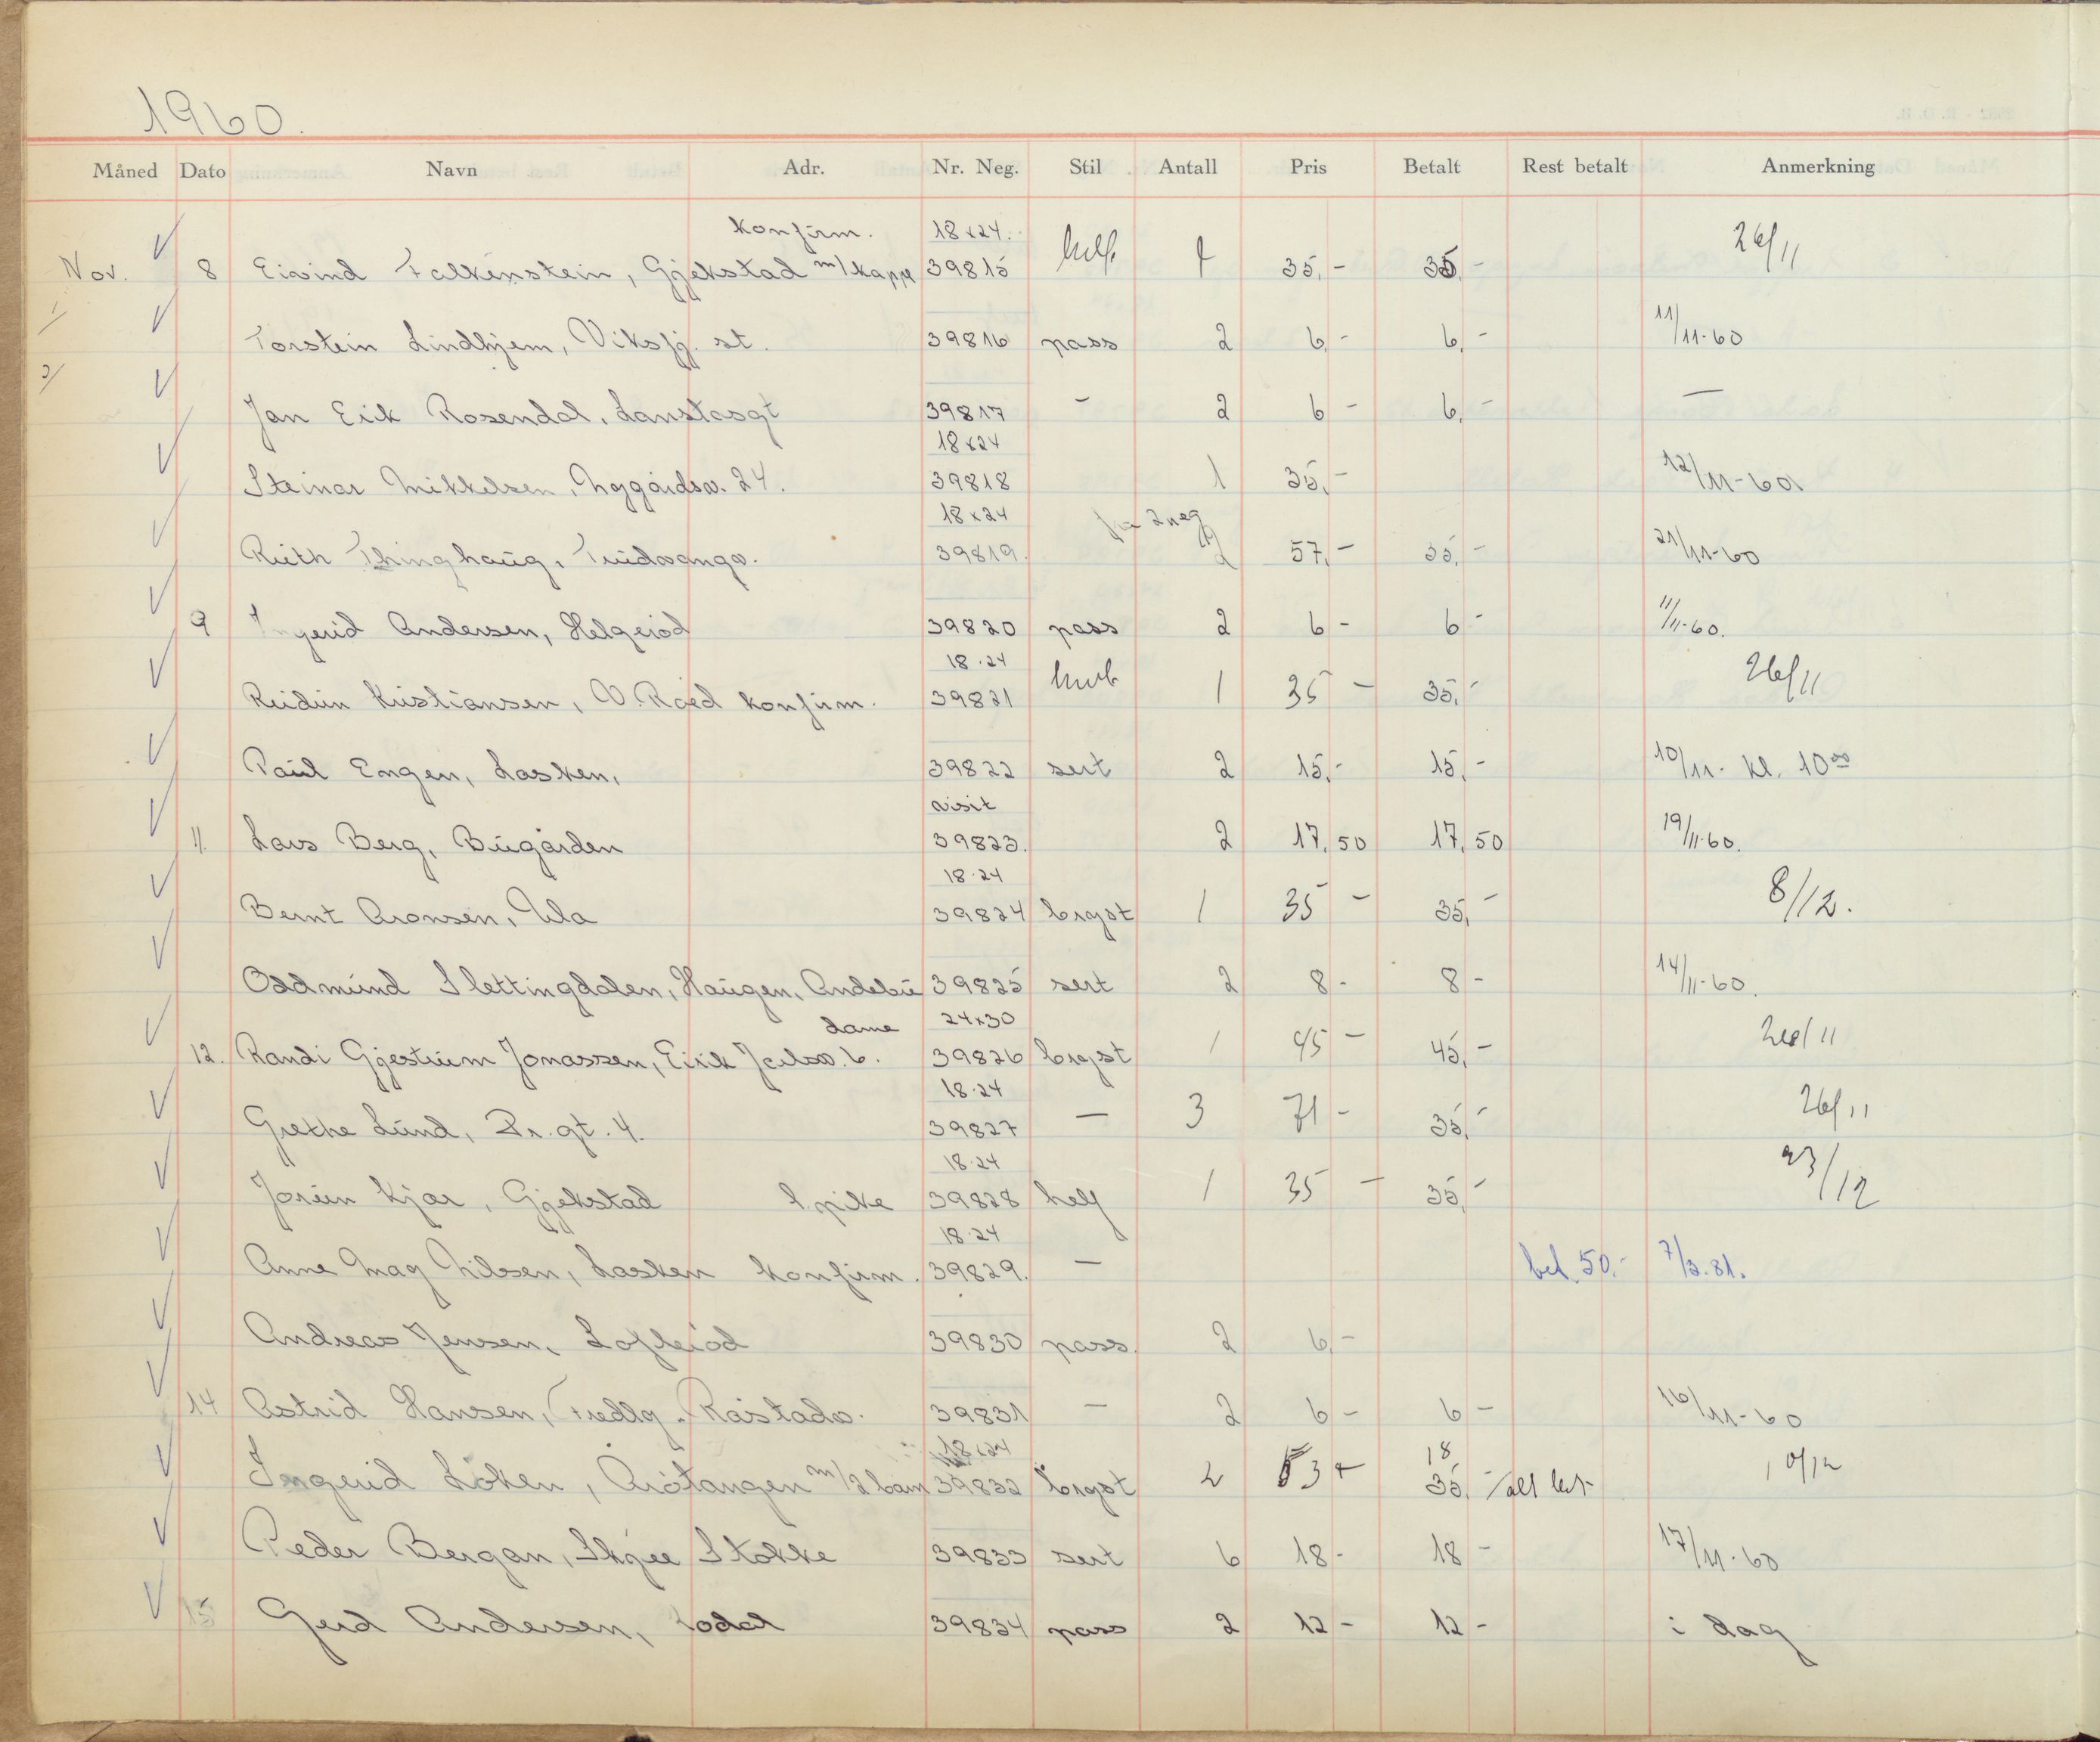 1960.
Måned Dato Navn Adr. Nr. Neg. Stil Antall Pris Betalt Rest betalt Anmerkning
konfirm. 18x24.
Nov. 8 Eivind Falkenstein, Gjekstad m/kappe 39815 35,- 35,- 26/11
Torstein Lindhjem, Viksfj. st. 39816 pass 2 6,- 6,- 11/11-60
Jan Erik Rosendal, 39817 - 2 6- 6,- —
18x24
Steinar Mikkelsen, 24. 39818 1 35,- 12/11-60.
18x24 2 neg
Ruth Thinghaug, 39819. 2 57,- 35,- 21/11-60
9 Ingerid Andersen, Helgerød 39820 pass 2 6- 6- 11/11-60.
18·24
Reidun Kristiansen, V. Råed konfirm. 39821 1 35- 35,- 26/11
Paul Engen, Lasken, 39822 sert 2 15,- 15,- 10/11- kl. 10⁰⁰
visit
11 Lars Berg, Bugården 39823. 2 17,50 17,50 19/11-60.
18·24
Bernt Aronsen, Ula 39824 bryst 1 35- 35,- 8/12.
Oddmund Slettingdalen, Haugen, Andebu 39825 sert 2 8- 8- 14/11-60.
dame 24x30
12. Randi Gjestrum Jonassen, Eirik 6. 39826 bryst 1 45- 45,- 11
18·24
Grethe Lund, Dr. gt. 4. 39827 — 3 71- 35,- 26/11
18·24
Jorun Kjær, Gjekstad 39828 hel 1 35- 35,- 23/12
18·24
Anne Mag Nilsen, Lasken konfirm. 39829. — bet. 50.- 7/3.81.
Andreas Jensen, 39830 pass 2 6,-
14 Astrid Hansen, Fredlg. Råstadv. 39831 — 2 6- 6- 16/11-60
18x24 18
Ingerid Löken, Årötangen m/2 barn 39832 bryst 2 35,- 10/12
Peder Bergan, Skjee Stokke 39833 sert 6 18- 18- 17/11-60
15 Gerd Andersen, 39834 pass 2 12- 12- i dag